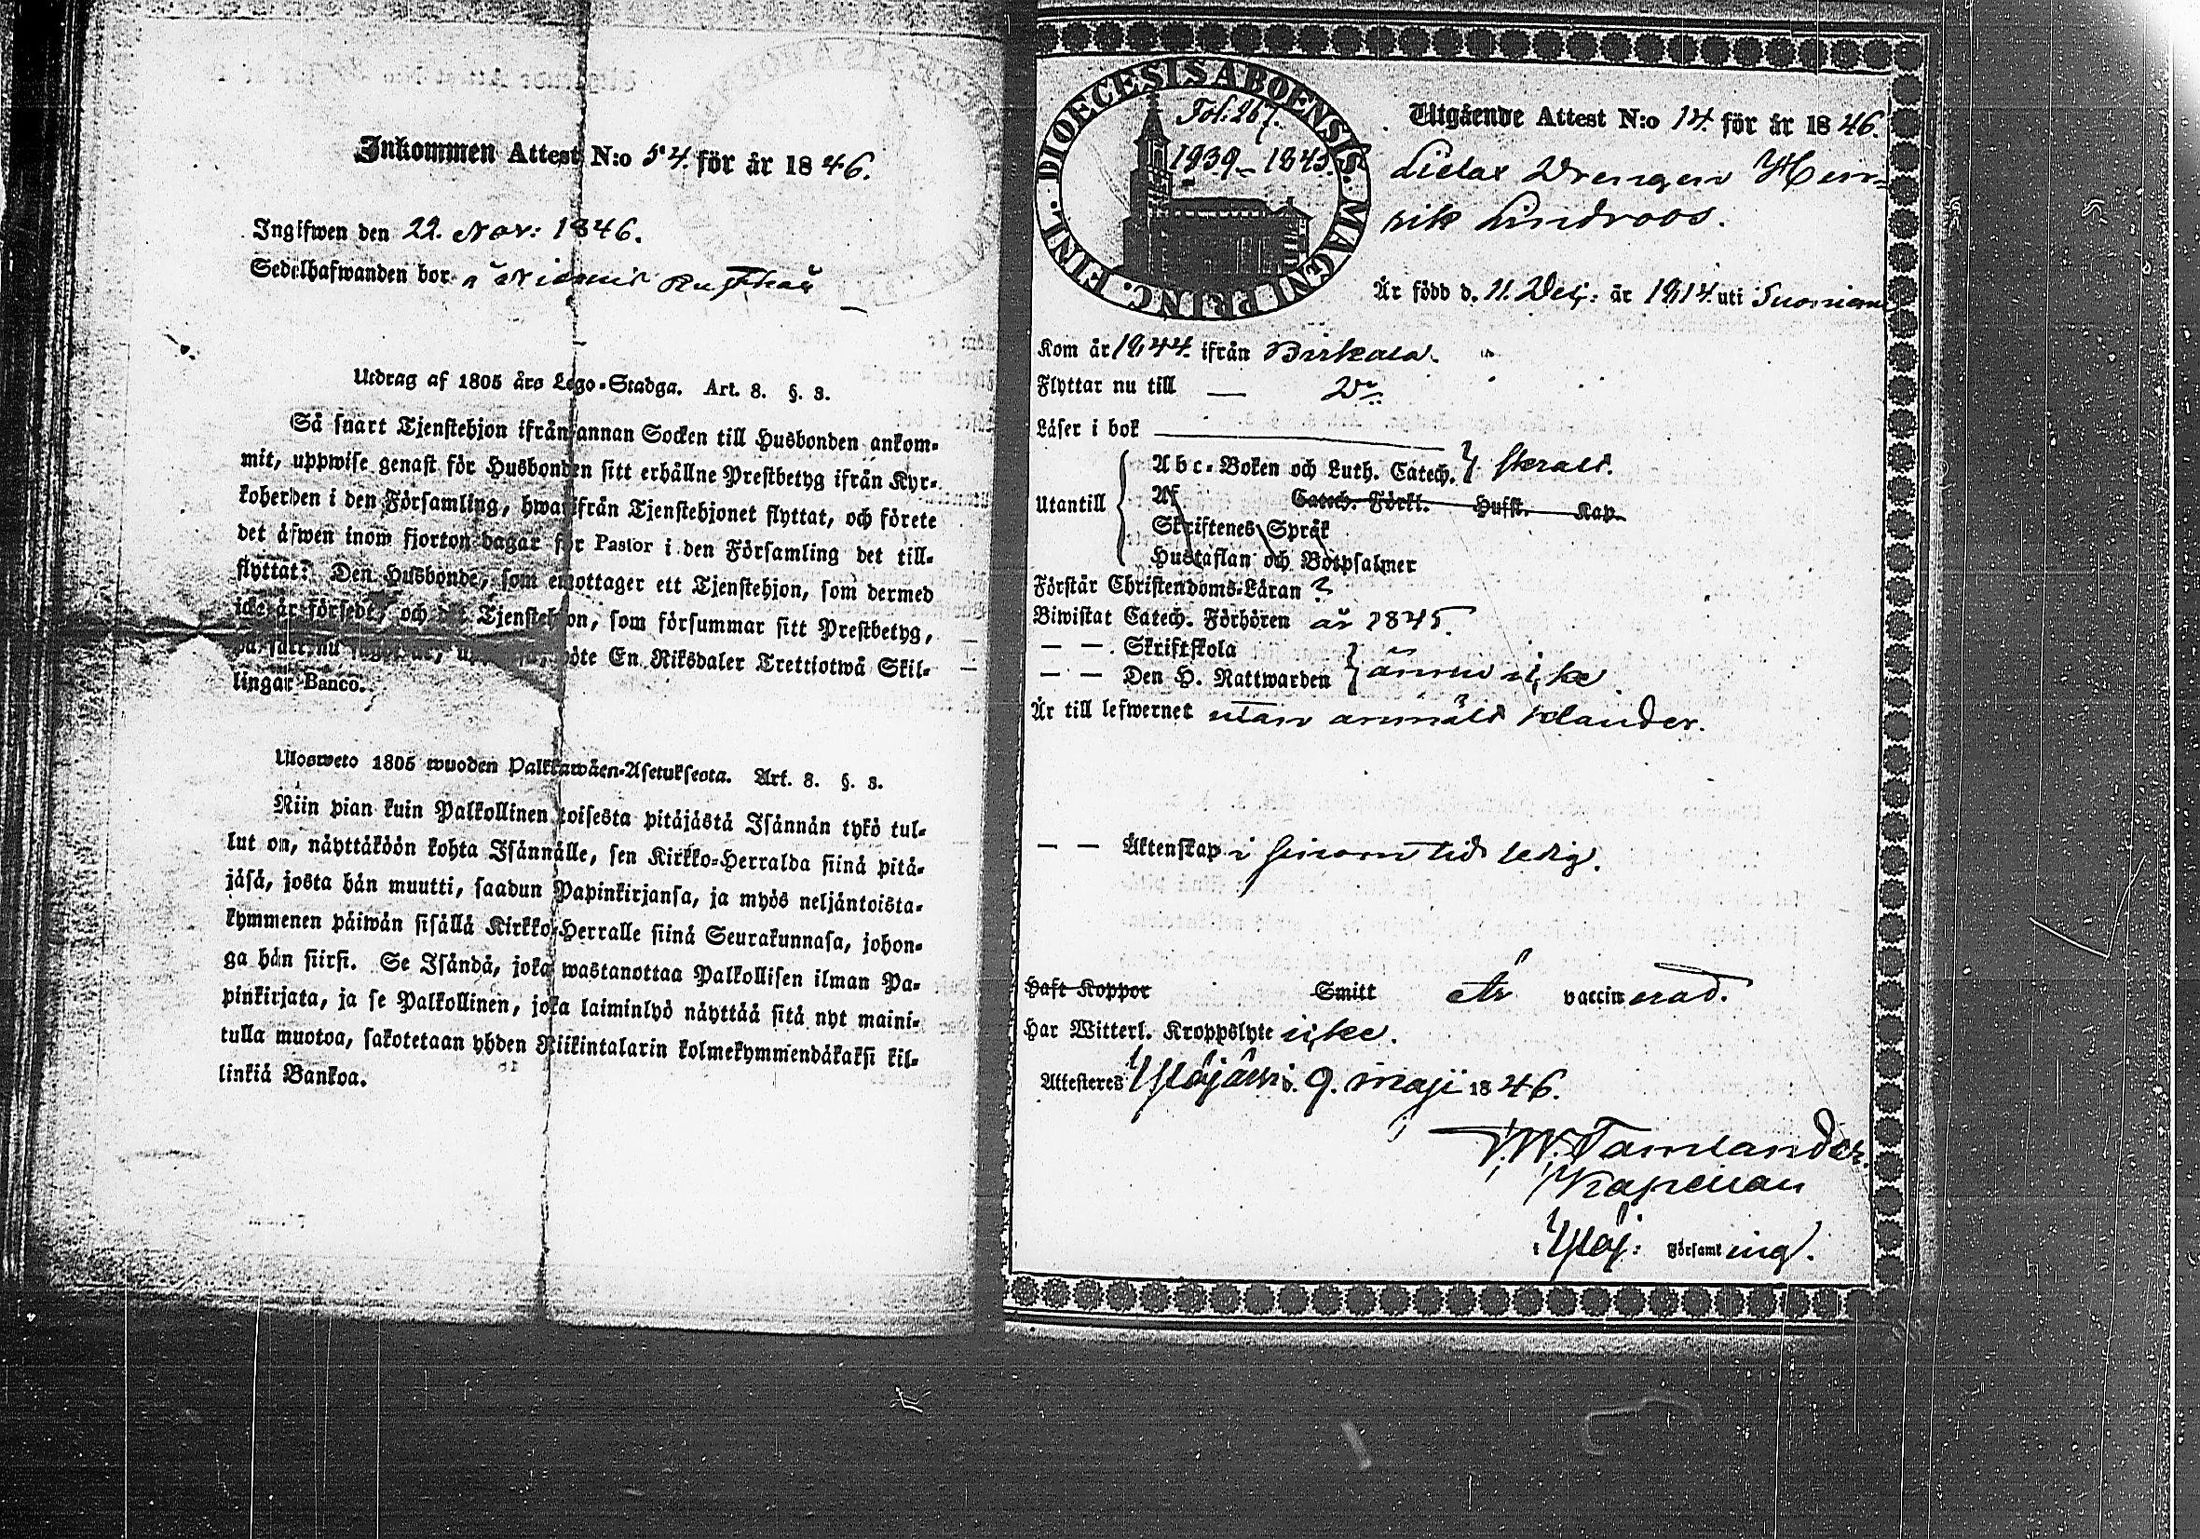 Inkommen Attest N:o 54. för år 1846.
Ingifwen den 22. Nov: 1846.
Sedelhafwanden bor å Niemis
Utdrag af 1805 års Lego-Stadga. Art. 8. §. 3.
Så snart Tjenstehjon ifrån annan Socken till Husbonden ankom-
mit, uppwise genast för Husbonden sitt erhållne Prestbetyg ifrån Kyr-
koherden i den Församling, hwarifrån Tjenstehjonet flyttat, och förete
det åfwen inom fjorton dagar för Pastor i den Församling det till-
flyttat. Den Husbonde, som emottager ett Tjenstehjon, som dermed
icke är försedt, och det Tjenstehjon, som försummar sitt Prestbetyg,
böte En Riksdaler Trettiotwå Skil-
lingar Banco.
Ulosweto 1805 wuoden Palkkawäen-Asetuksesta. Art. 8. §. 3.
Niin pian kuin Palkollinen toisesta pitäjästä Isännän tykö tul-
lut on, näyttäköön kohta Isännälle, sen Kirkko-Herralda siinä pitä-
jäsä, josta hän muutti, saadun Papinkirjansa, ja myös neljäntoista-
kymmenen päiwän sisällä Kirkko-Herralle siinä Seurakunnasa, johon-
ga hän siirsi. Se Isändä, joka wastanottaa Palkollisen ilman Pa-
pinkirjata, ja se Palkollinen, joka laiminlyö näyttää sitä nyt maini-
tulla muotoa, sakotetaan yhden Riikintalarin kolmekymmendäkaksi kil-
linkiä Bankoa.
DIOECESIS ABOENSIS. MAGNI PRINC. FINL.
Fol. 267.
1839-1845.
Utgående Attest N:o 14. för år 1846.
Drengen Hen-
rik Lindroos.
Är född d. 11. Dec: år 1814. uti Suoniemi
Kom år 1844. ifrån Birkala.
Flyttar nu till — Do
Läser i bok
Utantill
Abc-Boken och Luth. Catech.
Af Catech. Förkl. Husst. Kap.
Skriftenes Språk
Hustaflan och Botpsalmer
Förstår Christendoms-Läran ?
Biwistat Catech. Förhören år 1845.
— — Skriftskola
— — Den H. Nattwarden ännu icke
Är till lefwernet utan anmäldt klander.
— — Äktenskap i sinom tid ledig.
Haft Koppor Smitt Är vaccinerad.
Har Witterl. Kroppslyte icke.
Attesteres Ylöjärvi d. 9. Maji 1846.
Tamlander.
Kapellan
i Ylöj: Församling.